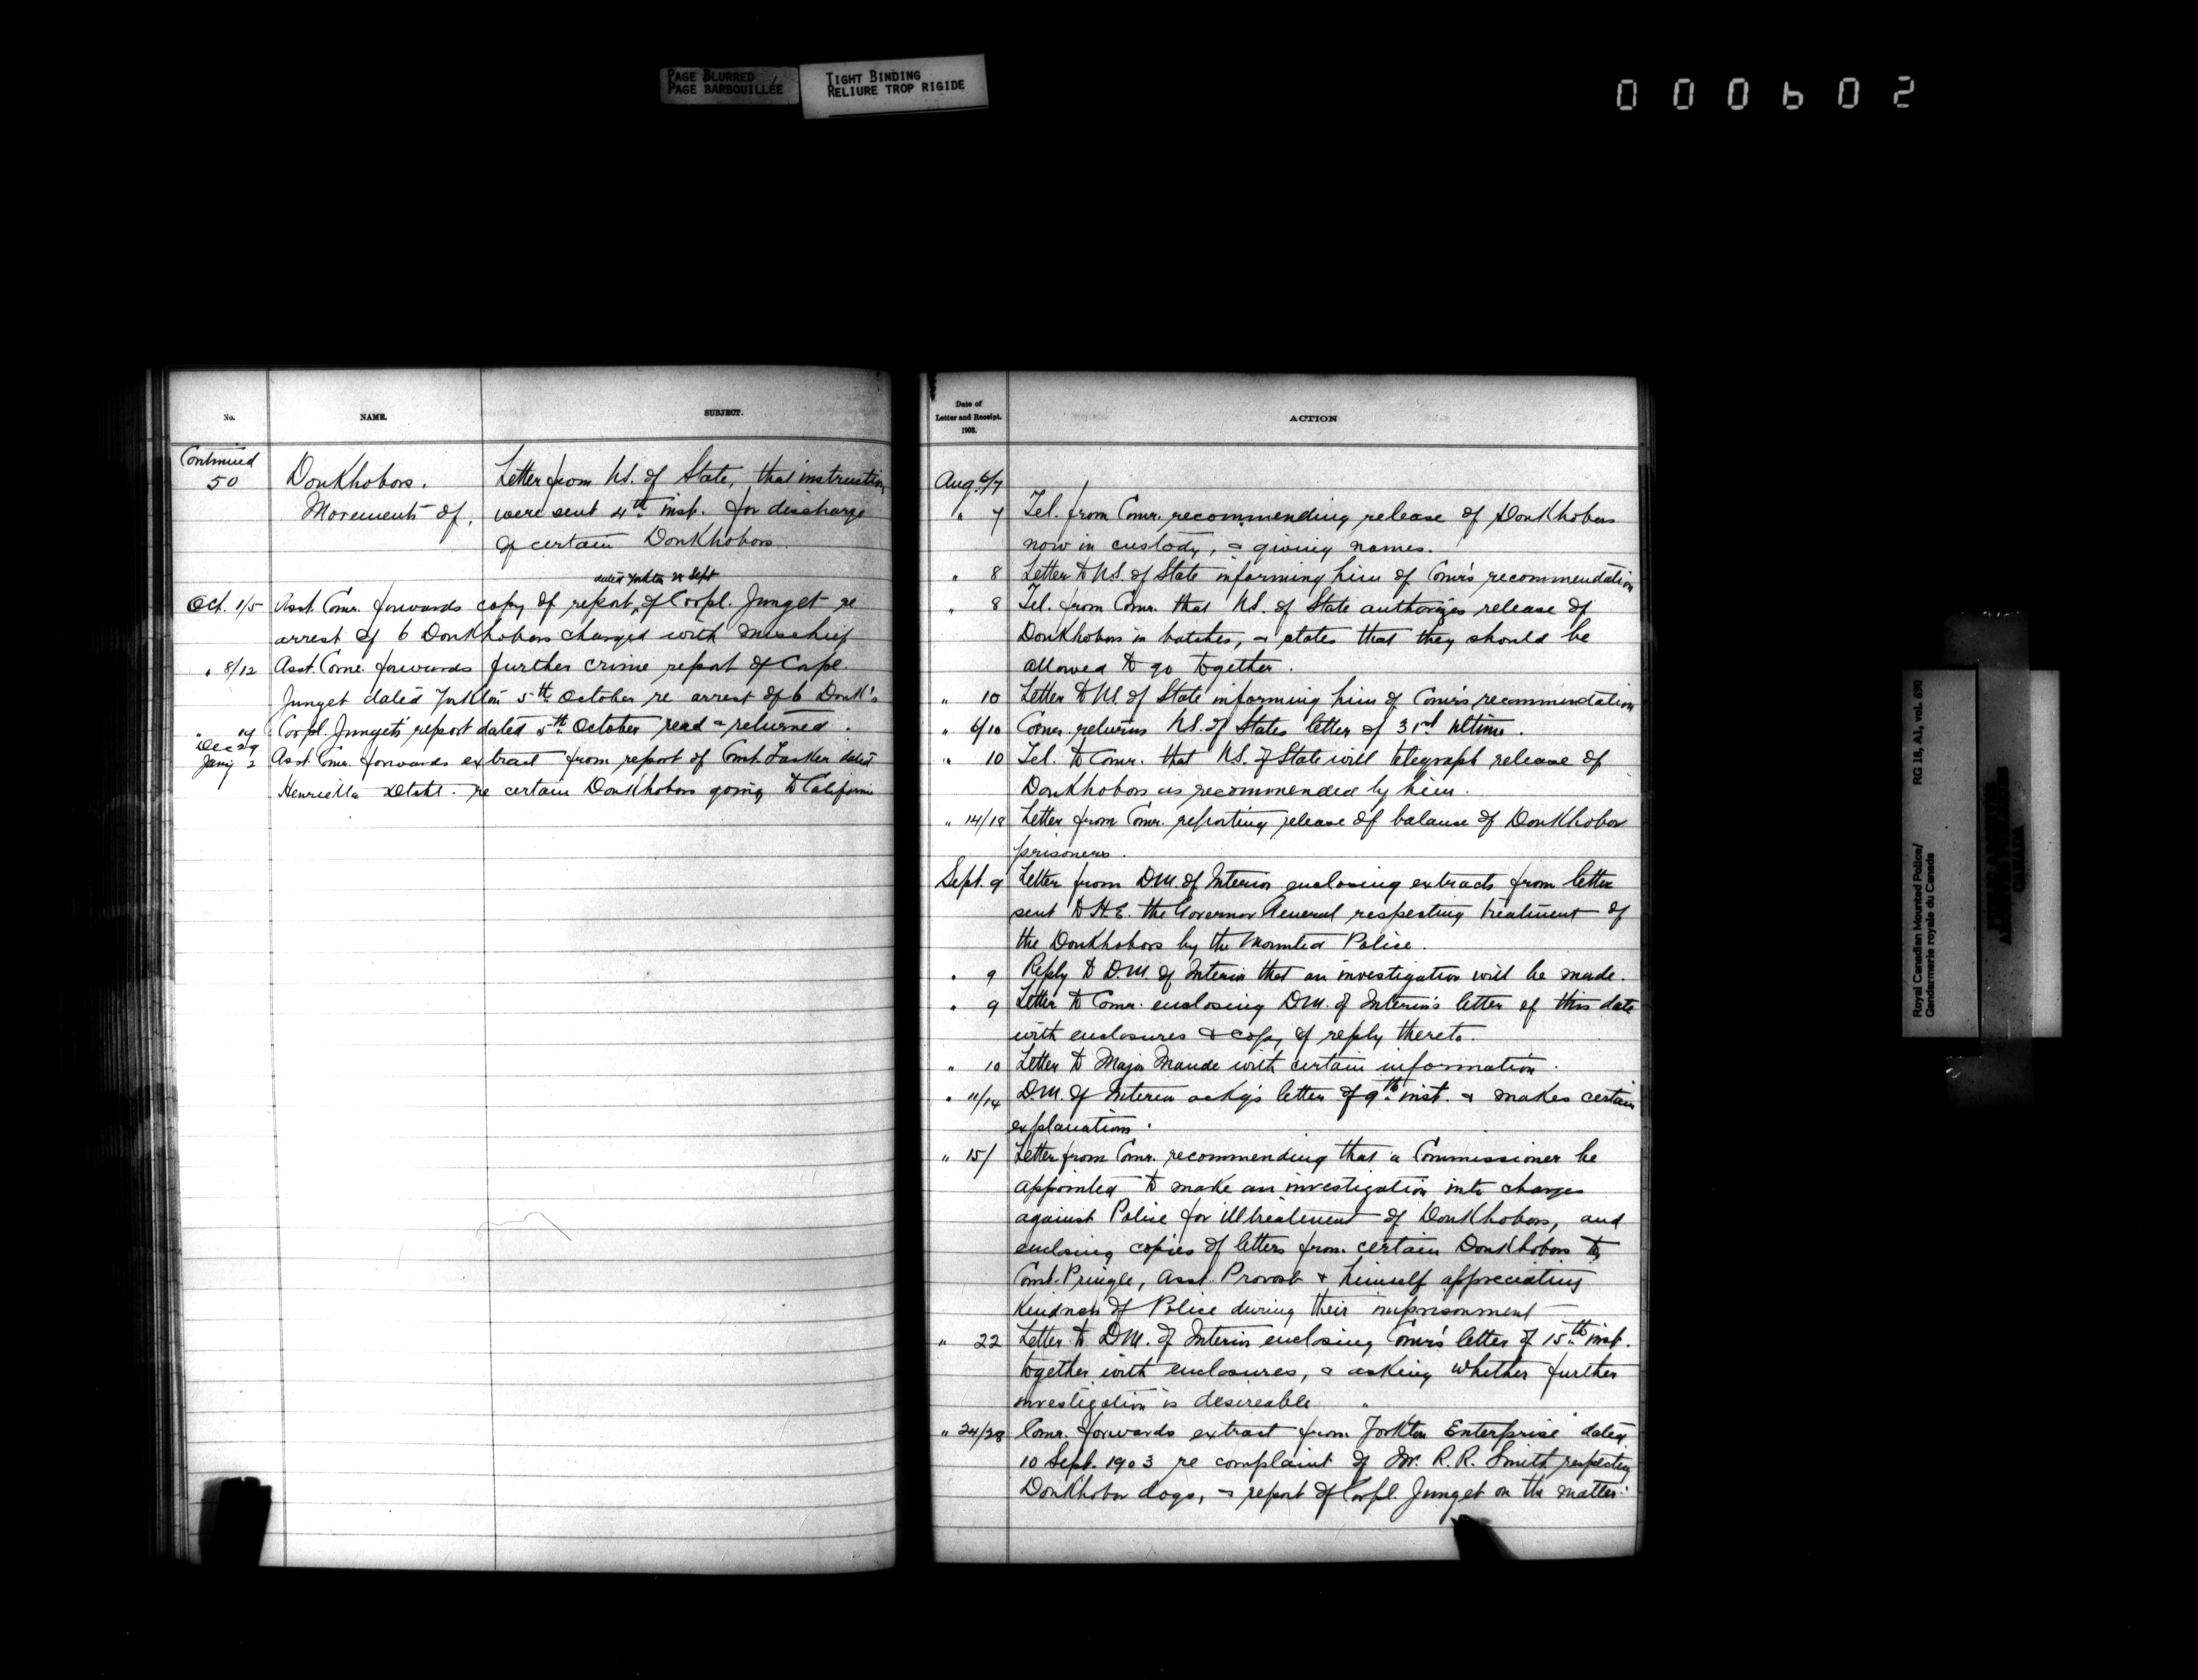 PAGE BLURRED
PAGE BARBOUILLÉE
TIGHT BINDING
RELIURE TROP RIGIDE
000602
No.
NAME.
SUBJECT.
Continued
50 Doukhobors. Letter from U.S. of State, that instruction
Movements of. were sent 4th inst. for discharge
of certain Doukhobors.
dated Yorkton Sept
Oct. 1/5 Asst. Comr. forwards copy of report of Corpl. Junget re
arrest of 6 Doukhobors charged with mischief
" 8/12 Asst. Comr. forwards further crime report of Corpl.
Junget dated Yorkton 5th October re arrest of 6 Douk's
" 19 Corpl. Junget's report dated 5th October read & returned.
Dec 29
Jany 2 Asst. Comr. forwards extract from report of Const. Lasker dated
Henrietta Detcht. re certain Doukhobors going to California
Date of
Letter and Receipt.
1903.
ACTION
Aug. 6/7
" 7 Tel. from Comr. recommending release of Doukhobors
now in custody, & giving names.
" 8 Letter to U.S. of State informing him of Comr's recommendation
" 8 Tel. from Comr. that U.S. of State authorizes release of
Doukhobors in batches, & states that they should be
allowed to go together.
" 10 Letter to U.S. of State informing him of Comr's recommendation
" 6/10 Comr. returns U.S. of States letter of 31st ultimo.
" 10 Tel. to Comr. that U.S. of State will telegraph release of
Doukhobors as recommended by him.
" 14/18 Letter from Comr. reporting release of balance of Doukhobor
prisoners.
Sept. 9 Letter from D.M. of Interior enclosing extracts from letter
sent to H.E. the Governor General respecting treatment of
the Doukhobors by the Mounted Police.
" 9 Reply to D.M. of Interior that an investigation will be made.
" 9 Letter to Comr. enclosing D.M. of Interior's letter of this date
with enclosures & copy of reply thereto.
" 10 Letter to Major Maude with certain information.
" 11/14 D.M. of Interior ackg's letter of 9th inst. & makes certain
explanations.
" 15/ Letter from Comr. recommending that a Commissioner be
appointed to make an investigation into charges
against Police for illtreatment of Doukhobors, and
enclosing copies of letters from certain Doukhobors to
Const. Pringle, Asst. Provost & himself appreciating
kindness of Police during their imprisonment
" 22 Letter to D.M. of Interior enclosing Comr's letter of 15th inst.
together with enclosures, & asking whether further
investigation is desireable.
" 24/28 Comr. forwards extract from Yorkton Enterprise dated
10 Sept. 1903 re complaint of Mr. R.R. Smith respecting
Doukhobor dogs, & report of Corpl. Junget on the matter.
Royal Canadian Mounted Police/ RG 18, A1, vol. 650
Gendarmerie royale du Canada
CANADA